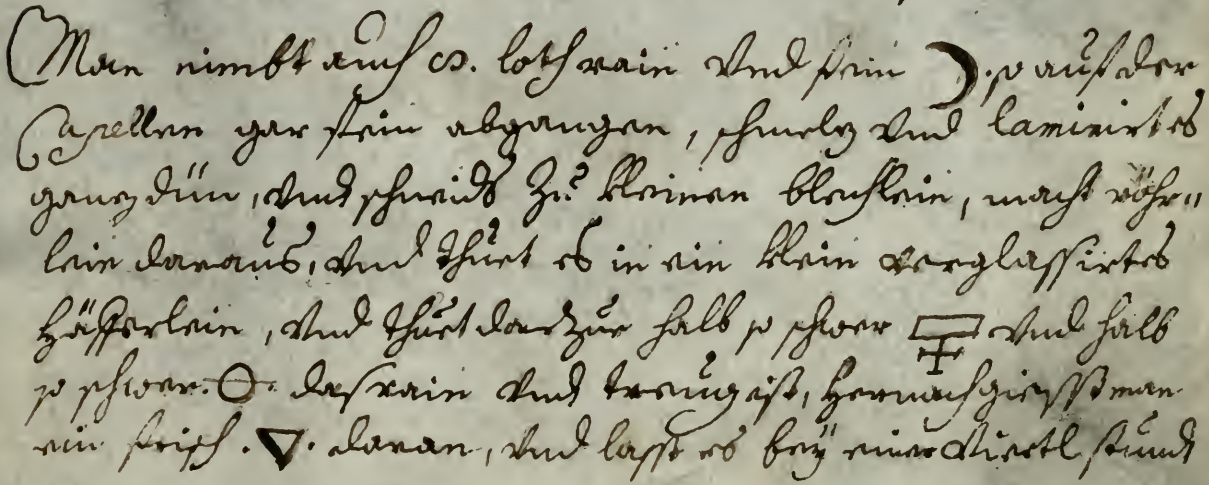 Man nimbt auch ꝏ. loth rain Vnd fein ☽. so auß der
Capellen gar fein abgangen, schmelz Vnd laminirt es
ganz dün, Vnd schneids Zu kleinen blechlein, macht röhr„
lein daraus, Vnd thuet es in ein klein verglassirtes
häfferlein, Vnd thuet darzue halb so schwer 🜿 Vnd halb
so schwer. 🜔. das rain Vnd treug ist, hernach giesst man
ein frisch. 🜄. daran, Vnd lasst es beÿ einer Viertl stundt